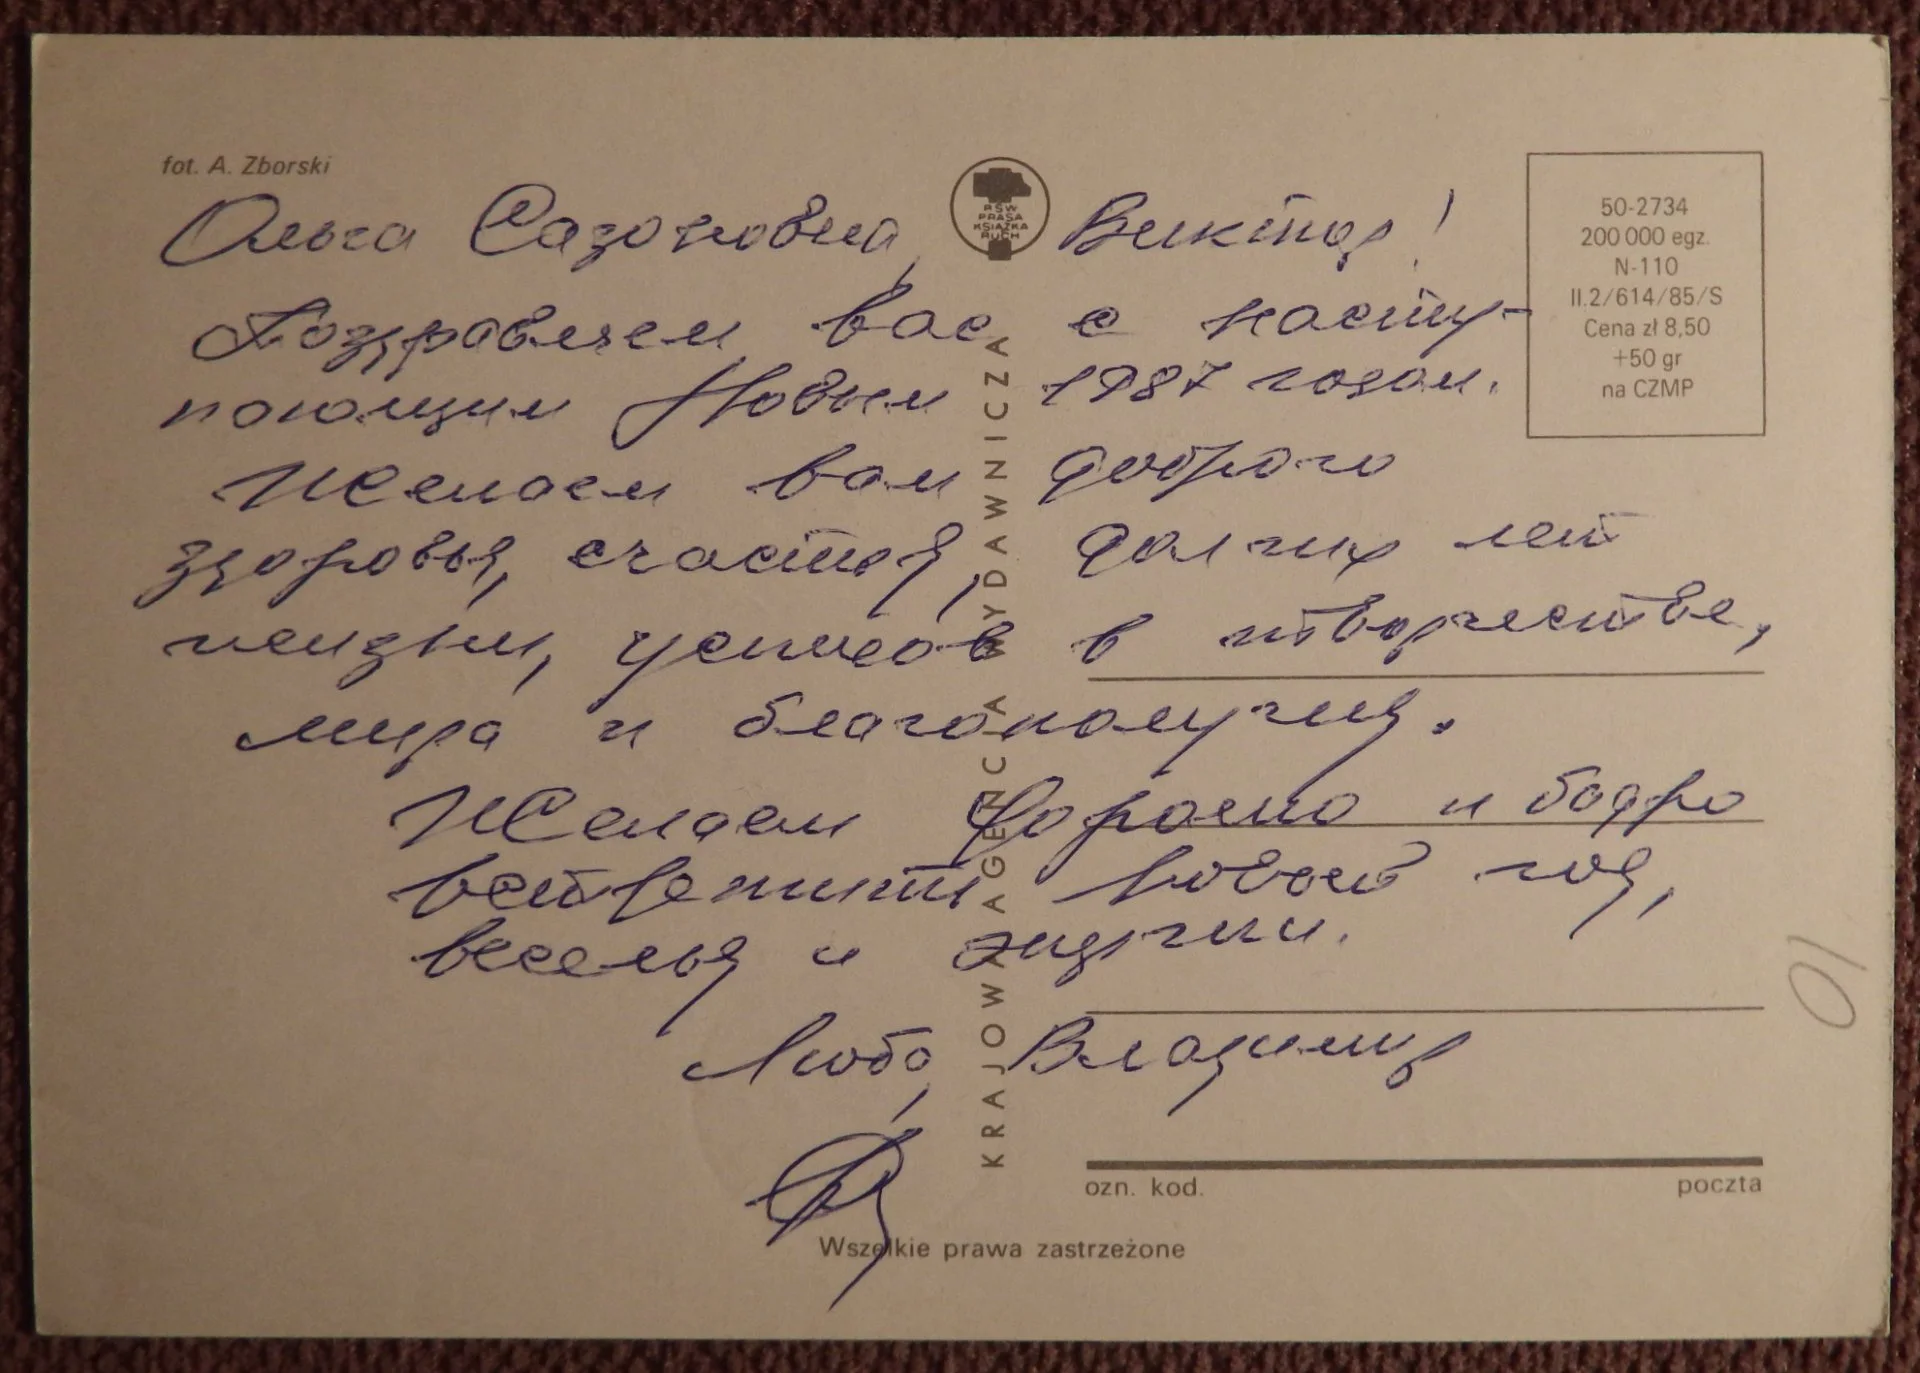 fot. A. Zborski
RSW
PRASA
KSIĄŻKA
RUCH
50-2734
200 000 egz.
N-110
II.2/614/85/S
Cena zł 8,50
+50 gr
na CZMP
Ольга Сазоновна, Виктор!
Поздравляем вас с насту-
пающим Новым 1987 годом.
Желаем вам доброго
здоровья, счастья, долгих лет
жизни, успехов в творчестве,
мира и благополучия.
Желаем хорошо и бодро
встретить новый год,
веселья и энергии.
Люба, Владимир
KRAJOWA AGENCJA WYDAWNICZA
ozn. kod.
poczta
Wszelkie prawa zastrzeżone
10